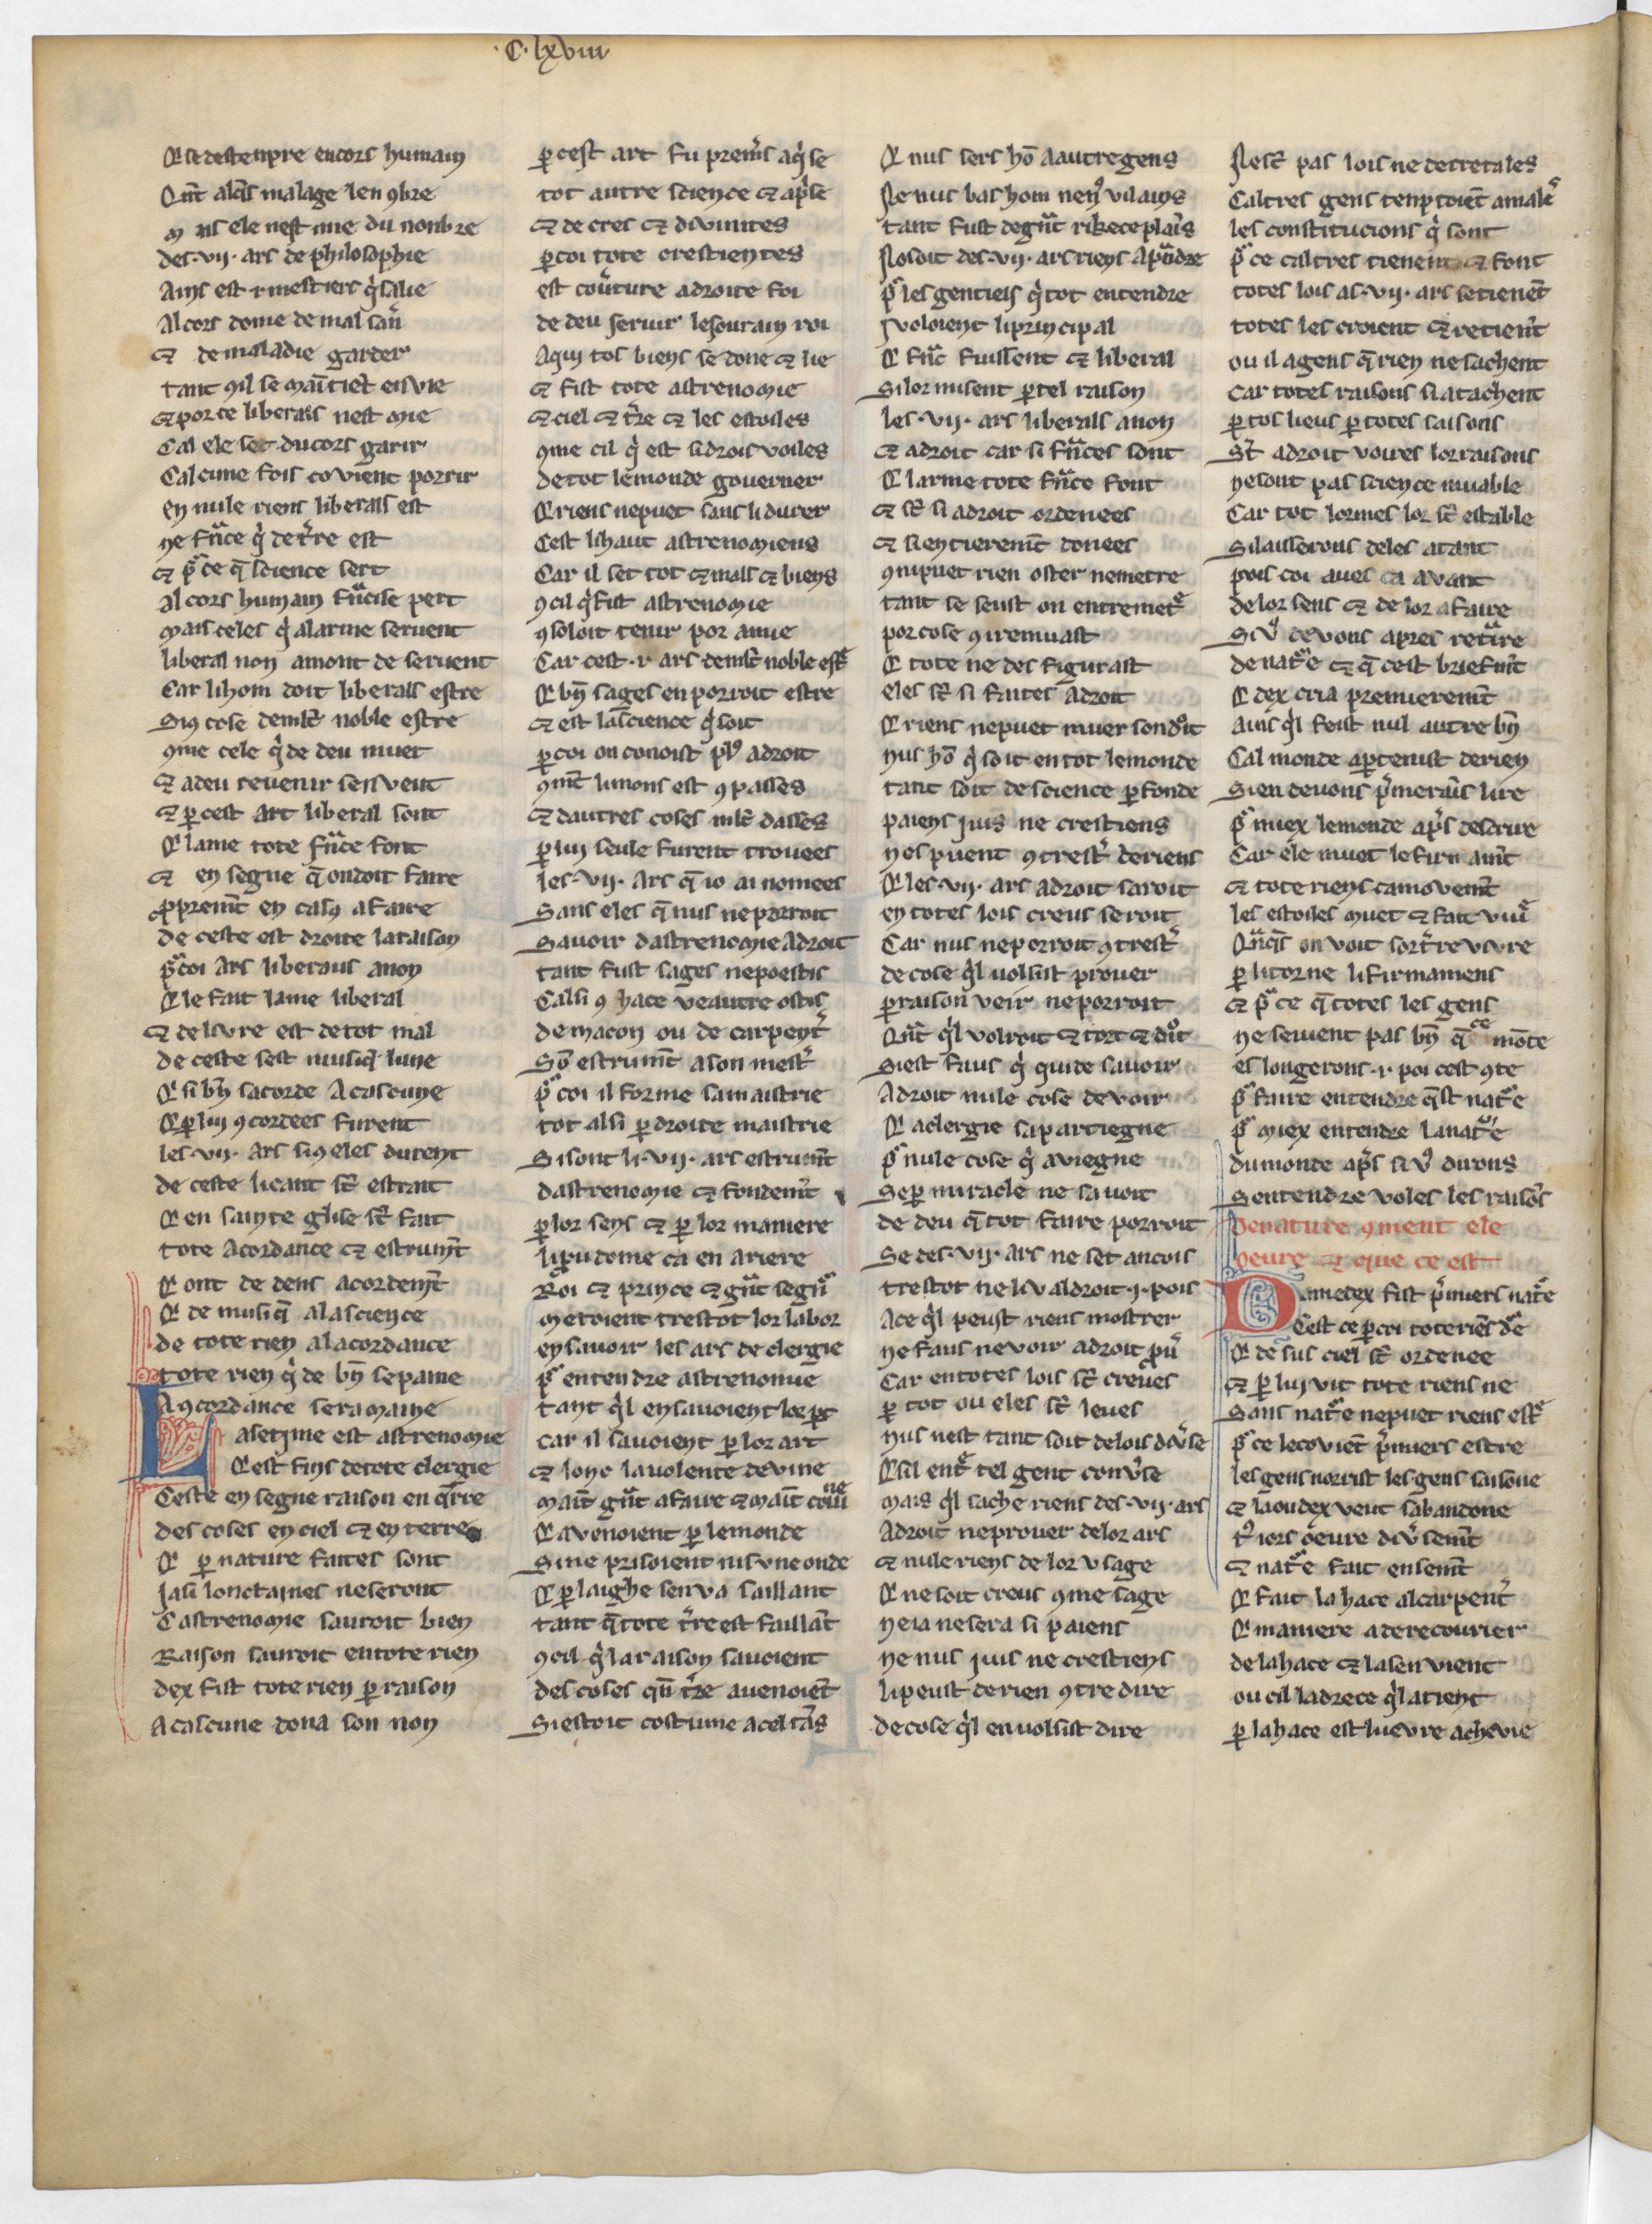 .C.lxviii
Q̃ se destenpre en cors humain
Qñt alcũs malage len ꝯbre
mais ele nest mie du nonbre
des .vii. ars de philosophie
Ains est .i. mestiers q̇ salie
Al cors dome de mal san̾
⁊ de maladie garder
tant ꝯ il se mãtiẽt en vie
⁊ por ce liberals nest mie
Cal ele sert du cors garir
Calcune fois covient porrir
en nule riens liberals est
ne frᵃnce q̇ de tre est
⁊ pᵒ ce q̃ science sert
Al cors humain frᵃncise pert
mais celes q̇ alarme seruent
liberal non amont deseruent
Car li hom doit liberals estre
Si ꝯ cose de mlt̃ noble estre
ꝯme cele q̇ de deu muet
⁊ a deu revenir sen veut
⁊ ꝑ cest art liberal sont
Q̃ lame tote frᵃnce font
⁊ en segne q̃ on doit faire
ꝓpremt̃ en casꝯ afaire
de ceste est droite la raison
pᵒ coi ars liberaus a non
Q̃ le fait lame liberal
⁊ delivre est de tot mal
de ceste sest musiq̃ lune
Q̃ si bn̄ sacorde a cascune
Q̃ ꝑ lui ꝯcordees furent
les .vii. ars si ꝯ eles durent
de ceste li cant st̃ estrait
Q̃ en sainte glise st̃ fait
tote acordance ⁊ estrumt̃
Q̃ ont de dens acordemt̃
Q̃ de musiq̃ a la science
de tote rien a lacordance
tote rien q̇ de bn̄ se paine
A ꝯcordance sera maine
Lasetime est astrenomie
Q̃ est fins de tote clergie
Ceste en segne raison en q̃rre
des coses en ciel ⁊ en terre
Q̃ ꝑ nature faites sont
Ja si lonctaines ne seront
C astrenomie sauroit bien
Raison sauroit en tote rien
dex fist tote rien ꝑ raison
A cascune dona son non
ꝑ cest art fu prem̃s aq̇se
tot autre science ⁊ apͥse
⁊ decres ⁊ divinites
ꝑ coi tote crestientes
est cou̾ture a droite foi
de deu seruir le sourain roi
A qui tos biens se done ⁊ lie
⁊ fist tote astrenomie
⁊ ciel ⁊ tr̃e ⁊ les estoiles
ꝯme cil q̇ est si drois voiles
de tot le monde gouerner
Q̃ riens ne puet sans li durer
Cest li haut astrenomiens
Car il set tot ⁊ mals ⁊ biens
ꝯ cil q̇ fist astrenomie
ꝯ soloit tenir por amie
Car cest .i. ars de mlt̃ noble estᵉ
Q̃ bn̄ sages en porroit estre
⁊ est la science q̇ soit
ꝑ coi on conoist plꝰ adroit
ꝯmt̃ li mons est ꝯpasses
⁊ dautres coses mlt̃ dasses
ꝑ lui seule furent trouees
les .vii. ars q̃ io ai nomees
Sans eles q̃ nus ne porroit
Sauoir dastrenomie adroit
tant fust sages ne poestis
Calsi ꝯ hace ve autre ostis
de macon ou de carpent̾
Sõ estrumt̃ a son mest̾
pᵒ coi il forme sa maistrie
tot alsi ꝑ droite maistrie
Si sont li .vii. ars estrumt̃
dastrenomie ⁊ fondemt̃
ꝑ lor sens ⁊ ꝑ lor maniere
li prudome ca en ariere
Roi ⁊ prince ⁊ grᵃnt segnᵒ
metoient trestot lor labor
en sauoir les ars de clergie
pᵒ entendre astrenomie
tant q̇l en sauoient lor part
Car il sauoient ꝑ lor art
⁊ lonc la volente devine
mait̃ grᵃnt afaire ⁊ mait̃ couine
Q̃ avenoient ꝑ le monde
Si ne prisoient nis vne onde
Q̃ ꝑ laighe senva saillant
tant q̃ tote tr̃e est faillãt
ꝯ cil q̇ la raison sauoient
des coses qen tr̃e auenoiẽt
Si estoit costume a cel tãs
Q̃ nus sers hõ a autre gens
Ne nus bas hom ne nꝰ vilains
tant fust de grᵃnt rikece plaĩs
Nosoit des .vii. ars riens aprᵉndre
pᵒ les gentiels q̇ tot entendre
i voloient li principal
Q̃ frᵃnc fuissent ⁊ liberal
Si lor misent ꝑ tel raison
les .vii. ars liberals a non
⁊ adroit car si frᵃnces sont
Q̃ larme tote frᵃnce font
⁊ st̃ si adroit ordenees
⁊ si entieremt̃ donees
ꝯ ni puet rien oster ne metre
tant se seust on entremetᵉ
por cose ꝯ i remuast
Q̃ tote ne desfigurast
eles st̃ si faites adroit
Q̃ riens ne puet muer son droit
nus hõ q̇ soit en tot le monde
tant soit de science ꝑfonde
paiens juis ne crestiens
nes puent ꝯtrest̾ de riens
Q̃ les .vii. ars adroit saroit
en totes lois creus seroit
Car nus ne porroit ꝯtrest̾
de cose q̇l volsist prouer
ꝑ raison veir ne porroit
Qñt q̇l volroit ⁊ tort ⁊ drᵒit
Si est faus q̇ quide sauoir
Adroit nule cose de voir
Q̃ a clergie sapartiegne
pᵒ nule cose q̇ aviegne
Se ꝑ miracle ne sauoit
de deu q̃ tot faire porroit
Se des .vii. ars ne set ancois
trestot ne li valdroit .i. pois
A ce q̇l peust riens mostrer
ne faus ne voir adroit prou̾
Car en totes lois st̃ creues
ꝑ tot ou eles st̃ leues
nus nest tant soit de lois divse
Q̃ sil entᵉ tel gent convse
mais q̇l sache riens des .vii. ars
Adroit ne prouer de lor ars
⁊ nule riens de lor vsage
Q̃ ne soit creus ꝯme sage
ne ia ne sera si paiens
ne nus juis ne crestiens
li peust de rien ꝯtre dire
de cose q̇l en volsist dire
Nest̃ pas lois ne decretales
Caltres gens tenptoiẽt a malᵉ
les constitucions q̇ sont
pᵒ ce caltres tienent ⁊ font
totes lois as .vii. ars se tienẽt
totes les croient ⁊ retienẽt
ou il a gens q̃ rien ne sachent
Car totes raisons si atachent
ꝑ tos lieus ꝑ totes saisons
St̃ adroit voires lor raisons
ne sont pas science muable
Car tot iormes lor st̃ estable
Si laisserons deles atant
pois coi aues ca avant
de lor sens ⁊ de lor afaire
Si vꝰ devons apres retᵃire
de natᵉ ⁊ q̃ cest briefmt̃
Q̃ dex cria premieremt̃
Ains q̇l feist nul autre bn̄
Cal monde apertenist de rien
Si en deuons pͥmerains lire
pᵒ miex le monde apͥs descrire
Car ele muet le firmamt̃
⁊ tote riens ca movemt̃
les estoiles muet ⁊ fait viurᵉ
Qñq̃s on voit sor tr̃e vivre
ꝑ li torne li firmamens
⁊ pᵒ ce q̃ totes les gens
ne seuent pas bn̄ q̃ ce mõte
es longerons .i. poi cest ꝯte
pᵒ faire entendre q̃ st̃ natᵉ
pᵒ miex entendre la natᵘre
du monde apͥs si vꝰ dirons
Sentendre voles les raisõs
De nature ꝯment ele
oeure ⁊ que ce est
Damedex fist pͥmiers natᵉ
Cest ce ꝑ coi tote riẽs dᵘre
Q̃ de sus ciel st̃ ordenee
⁊ ꝑ lui vit tote riens ne
Sans natᵉ ne puet riens estᵉ
pᵒ ce le coviẽt pͥmiers estre
les gens norrist les gens saisone
⁊ la ou dex veut sabandone
tꝰ iors oeure divsemt̃
⁊ natᵉ fait ensemt̃
Q̃ fait la hace al carpent̾
Q̃ maniere a de recourier
de la hace ⁊ lasen vient
ou cil ladrece q̇ la tient
ꝑ la hace est luevre achevie